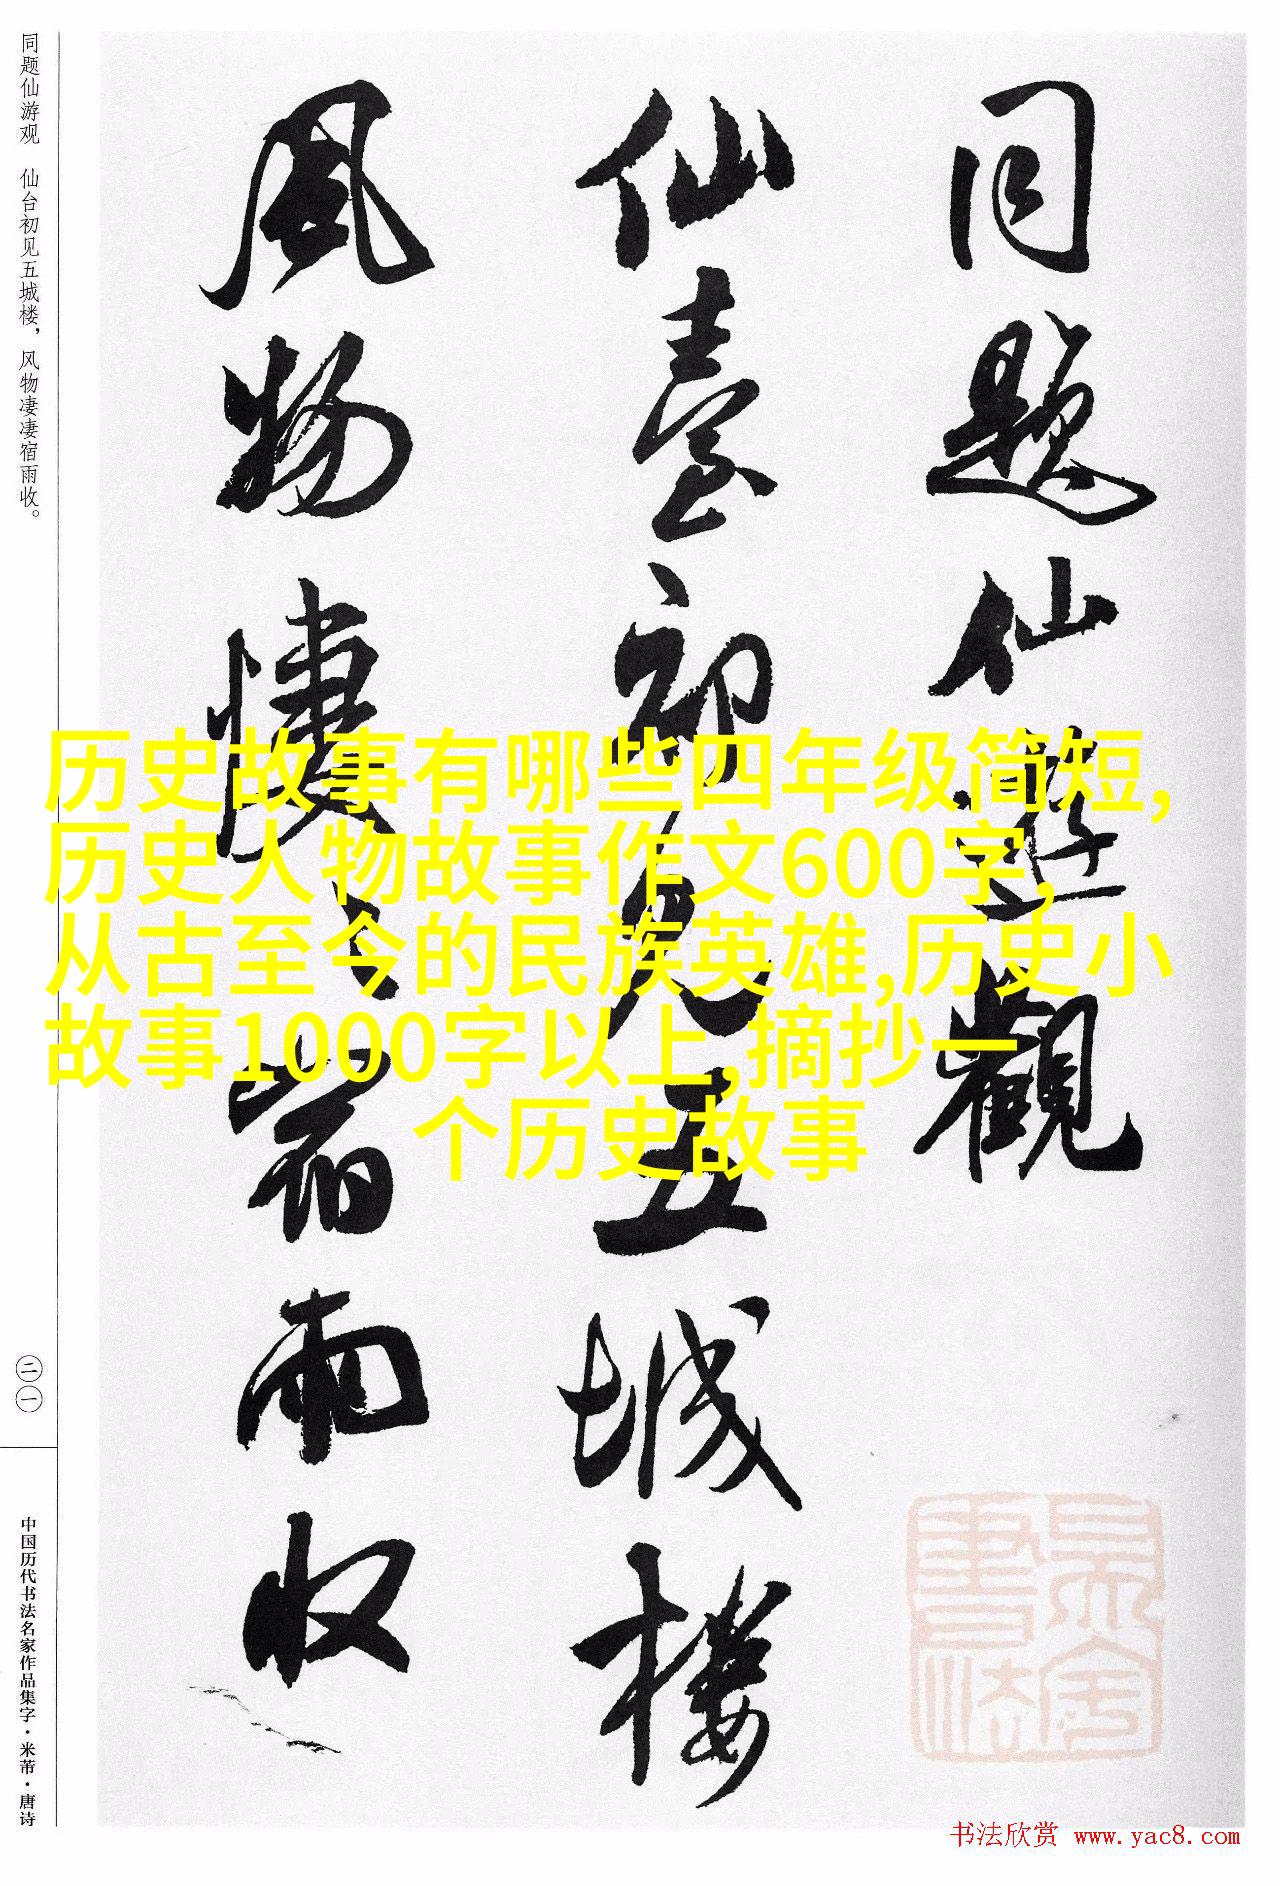 同题仙游观 仙台初见五城楼，风物凄凄宿雨收。
二一
中国历代书法名家作品集字·米芾·唐诗
同題仙遊觀
仙臺初見五城樓
風物悽々宿雨收
历史故事有哪些四年级简短,
历史人物故事作文600字,
从古至今的民族英雄,历史小
故事1000字以上,摘抄一
个历史故事
书法欣赏 www.yac8.com